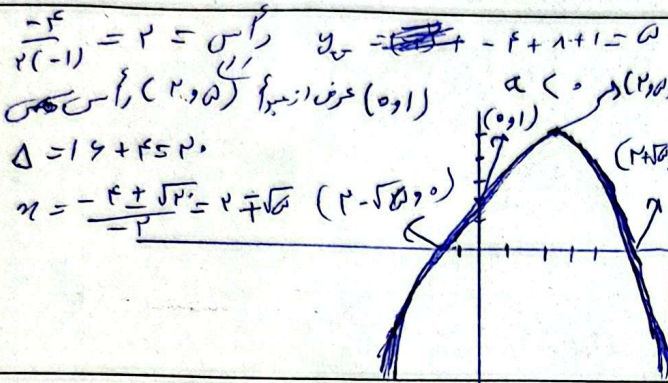 −۴/۲(−۱) = ۲ = رأس yس = −۴+۸+۱=۵
رأس (۲,۵) عرض از مبدأ (۰,۱)
a < ۰ (۲,۵
Δ = ۱۶+۴=۲۰ (۰,۱)
x = −۴±√۲۰/−۲ = ۲∓√۵ (۲−√۵,۰) (۲+√۵